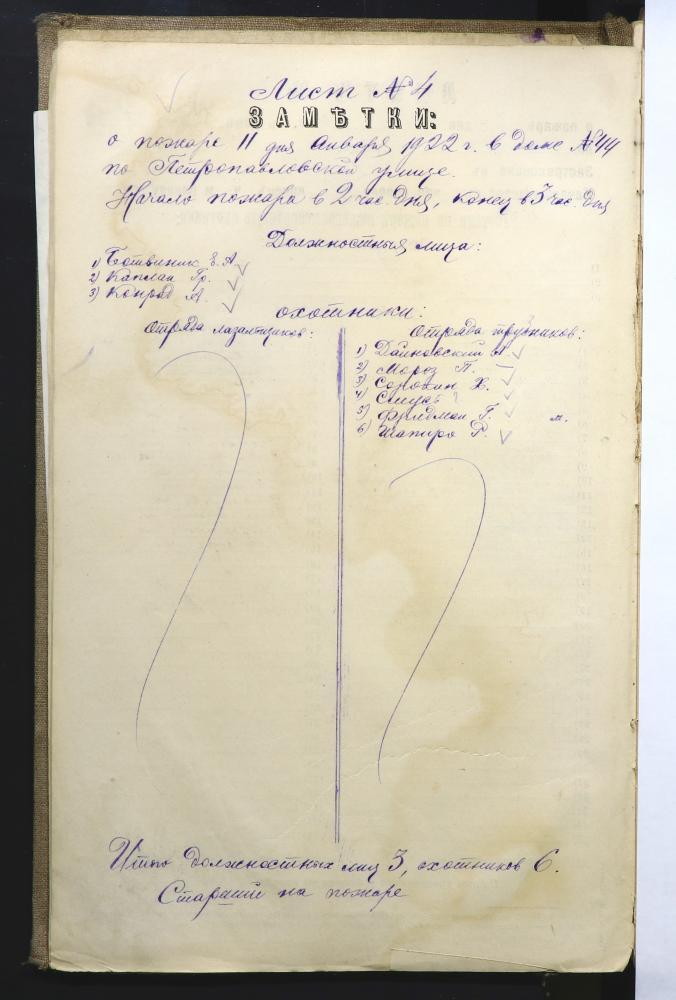 Лист № 4
ЗАМѢТКИ:
о пожаре 11 дня Января 1922 г. в доме № 44
по Петропавловской улице.
Начало пожара в 2 час. дня, конец в 3 час. дня
Должностныя лица:
1) Ботвиник Е. А.
2) Каплан Гр.
3) Конрад А.
охотники:
Отряда лазальщиков:
Отряда трубников:
1) Дайновский
2) Мороз П.
3) Сорокин Х.
4) Слуцк
5) Фридман Г.
6) Шапиро Р.
Итого должностных лиц 3, охотников 6.
Старший на пожаре